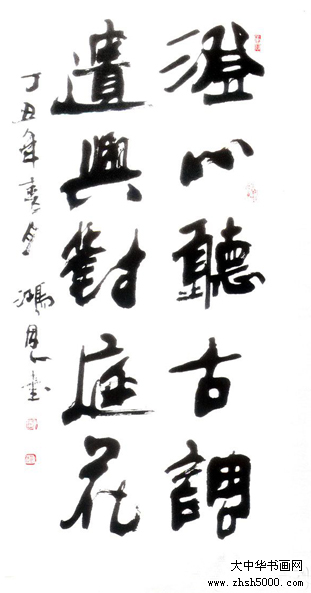 澄心聽古調
遣興對庭花
丁丑年季冬 鴻恩書
大中华书画网
www.zhsh5000.com